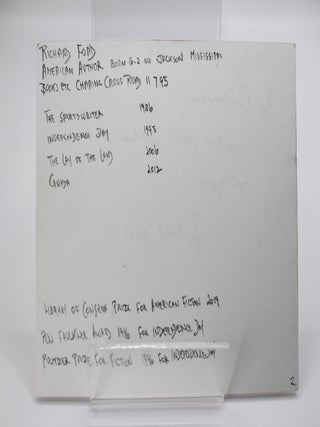 RICHARD FORD
AMERICAN AUTHOR BORN 16.2.44 JACKSON MISSISSIPPI
BOOKS ETC CHARING CROSS ROAD 11 7 95
THE SPORTSWRITER 1986
INDEPENDENCE DAY 1995
THE LAY OF THE LAND 2006
CANADA 2012
LIBRARY OF CONGRESS PRIZE FOR AMERICAN FICTION 2019
PEN FAULKNER AWARD 1996 FOR INDEPENDENCE DAY
PULITZER PRIZE FOR FICTION 1996 FOR INDEPENDENCE DAY
2